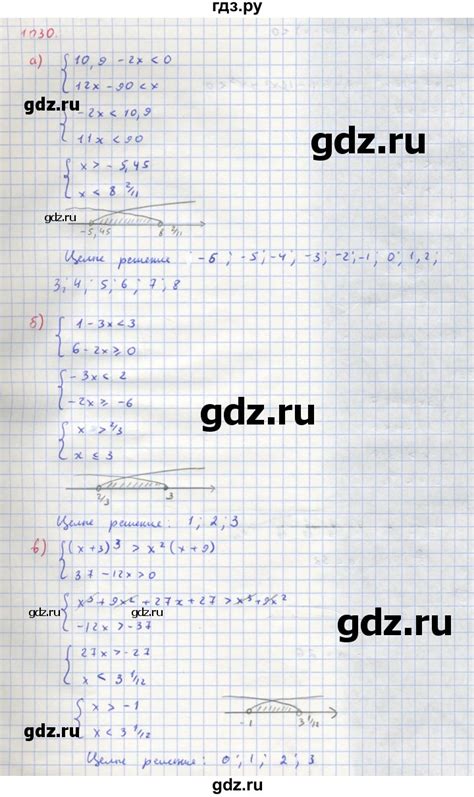 гдз.ру
1030.
а) { 10,9 - 2x < 0
12x - 90 < x
gdz.ru
{ -2x < 10,9
11x < 90
gdz.ru
{ x > -5,45
x < 8 2/11
gdz.ru
-5,45 8 2/11
Целые решение : -6 ; -5 ; -4 ; -3 ; -2 ; -1 ; 0 ; 1, 2 ;
3; 4 ; 5 ; 6 ; 7 ; 8
б) { 1 - 3x < 3
6 - 2x ≥ 0
{ -3x < 2
-2x ≥ -6
gdz.ru
{ x > 2/3
x ≤ 3
2/3 3
Целые решение: 1 ; 2 ; 3
в) { (x+3)³ > x²(x+9)
37 - 12x > 0
{ x³ + 9x² + 27x + 27 > x³ + 9x²
-12x > -37
gdz.ru
gdz.ru
gdz.ru
{ 27x > -27
x < 3 1/12
{ x > -1
x < 3 1/12
-1 3 1/12
Целые решение: 0 ; 1 ; 2 ; 3
gdz.ru
gdz.ru